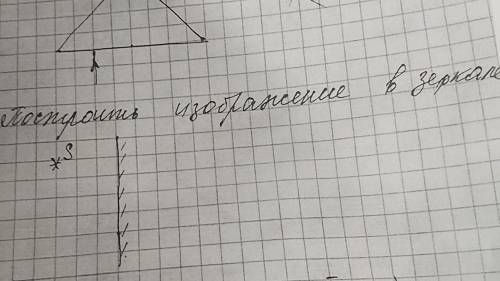 Построить изображение в зеркале
S